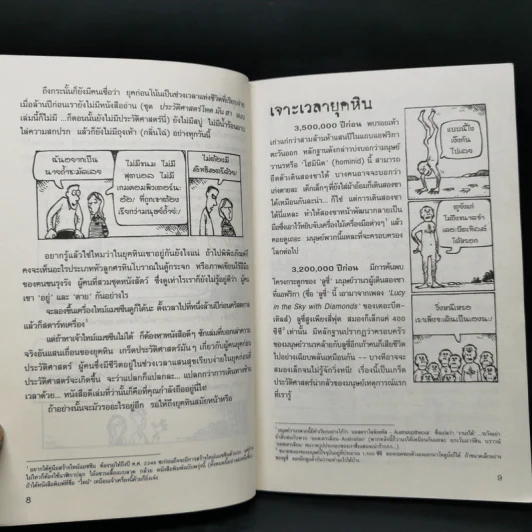 ถึงกระนั้นก็ยังมีคนเชื่อว่า ยุคก่อนโน้นเป็นช่วงเวลาแห่งชีวิตที่เรียบง่าย
เมื่อล้านปีก่อนเรายังไม่มีหนังสืออ่าน (ชุด ประวัติศาสตร์โหด มัน ฮา แบบ
เล่มนี้ก็ไม่มี ...ก็ตอนนั้นยังไม่มีประวัติศาสตร์นี่) ยังไม่มีสบู่ ไม่มีน้ำร้อนอาบ
ใส่ความสกปรก แล้วก็ยังไม่มีถุงเท้า (กลิ่นไฉ่) อย่างทุกวันนี้
ฉันอยากเป็น
นางถ้ำซะมัดเลย
ไม่มีขนม ไม่มี
ฟุตบอล ไม่มี
เกมคอมพิวเตอร์น่ะ
เรียกว่ามนุษย์ถ้ำจ้ะ
อยากรู้แล้วใช่ไหมว่าในยุคหินเขาอยู่กันยังไงแน่ ถ้าไปพิพิธภัณฑ์
คงจะเห็นอะไรประเภทหัวลูกศรหินโบราณในตู้กระจก หรือภาพเขียนไร้ฝีมือ
ของคนขนรุงรัง ผู้คนที่สวมชุดหนังสัตว์ ซึ่งดูเท่าไรเราก็ยังไม่รู้อยู่ดีว่า ผู้คน
เขา 'อยู่' และ 'ตาย' กันอย่างไร
จะลองขึ้นเครื่องไทม์แมชชีนดูก็ได้นะ ตั้งเวลาไปที่หนึ่งล้านปีก่อนคริสตกาล
แล้วก็สตาร์ทเครื่อง
แต่ถ้าหาเจ้าไทม์แมชชีนไม่ได้ ก็ต้องหาหนังสือดีๆ ซักเล่มที่บอกเล่าความ
จริงอันแสนเถื่อนของยุคหิน เกร็ดประวัติศาสตร์มันๆ เกี่ยวกับผู้คนยุคก่อน
ประวัติศาสตร์ ผู้คนซึ่งมีชีวิตอยู่ในช่วงเวลาแสนสุขเรียบง่ายในยุคก่อนที่
ประวัติศาสตร์จะเกิดขึ้น จะว่าแปลกก็แปลกละ... แปลกกว่าการเดินทางข้าม
เวลาด้วย... หนังสือดีเด่นที่ว่านั้นก็คือที่คุณกำลังถืออยู่นี่ไง!
ถ้าอย่างนั้นจะมัวรออะไรอยู่อีก รอให้ถึงยุคหินสมัยหน้าหรือ
8
เจาะเวลายุคหิน
3,500,000 ปีก่อน พบรอยเท้า
เก่าแก่กว่าสามล้านห้าแสนปีในแถบแอฟริกา
ตะวันออก หลักฐานดังกล่าวบ่งบอกว่ามนุษย์
วานรหรือ 'โฮมินิด' (hominid) นี้ สามารถ
ยืดตัวเดินสองขาได้ บางคนอาจจะบอกว่า
เก่งตายละ เด็กเล็กๆที่ยังใส่ผ้าอ้อมก็เดินสองขา
ได้เหมือนกันล่ะน่า... ก็ใช่ แต่การเดินสองขา
ได้นี่แหละ ทำให้สองขาหน้าพัฒนากลายเป็น
มือซึ่งเอาไว้หยิบจับเครื่องไม้เครื่องมือต่างๆ แล้ว
คอยดูเถอะ มนุษย์พวกนี้แหละที่จะครอบครอง
โลกต่อไป
3,200,000 ปีก่อน มีการค้นพบ
โครงกระดูกของ 'ลูซี่' มนุษย์วานรผู้เดินสองขา
ที่แอฟริกา (ชื่อ 'ลูซี่' นี้ เอามาจากเพลง 'Lucy
in the Sky with Diamonds' ของเดอะบีต-
เทิลส์) ลูซี่สูงเพียงสี่ฟุต สมองก็เล็กแค่ 400
ซีซี เท่านั้น มีหลักฐานปรากฏว่าครอบครัว
ของมนุษย์วานรคล้ายกับลูซี่อีกเก้าคนก็เสียชีวิต
ไปอย่างเฉียบพลันเหมือนกัน -- บางทีอาจจะ
สมองเล็กจนไม่รู้จักวิ่งหนี เรื่องนี้เป็นเกร็ด
ประวัติศาสตร์น่ากลัวของมนุษย์เหตุการณ์แรก
ที่เรารู้
9